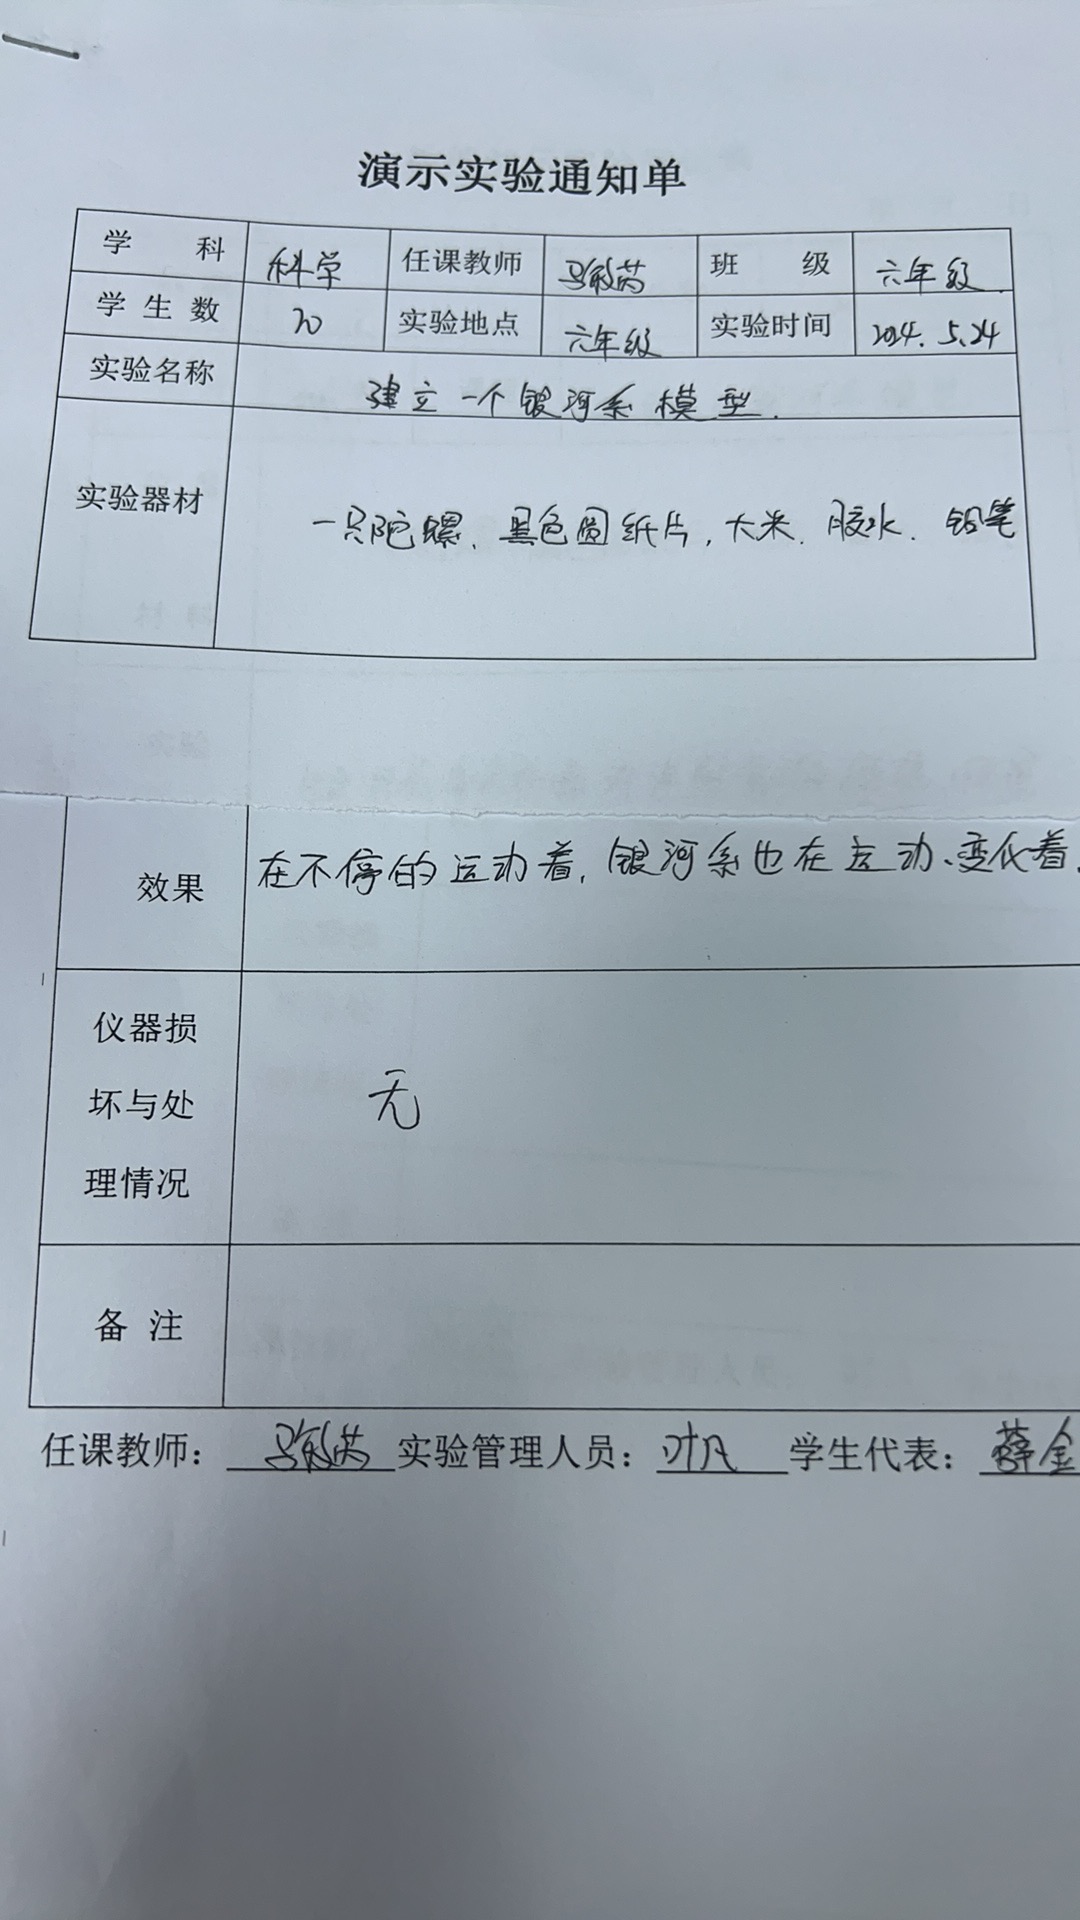 演示实验通知单
学 科 科学 任课教师 马敏芮 班 级 六年级
学生数 20 实验地点 六年级 实验时间 2024.5.24
实验名称 建立一个银河系模型.
实验器材 一只陀螺、黑色圆纸片,大米、胶水、铅笔
效果 在不停的运动着,银河系也在运动、变化着.
仪器损
坏与处 无
理情况
备 注
任课教师: 马敏芮 实验管理人员: 学生代表: 薛金